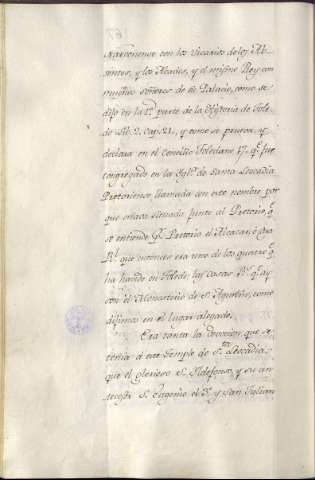 Narvonense con los Vicarios de los Ab-
sentes, y los Abades, y el mismo Rey con
muchos señores de su Palacio, como se
dijo en la 1ª parte de la Historia de Tole-
do Lib. 2. cap. 21. y como se prueva, y
declara en el Concilio Toledano 17. qᵉ fue
congregado en la Yglª de Santa Leocadia
Pretoriense, llamada con este nombre por
que estava situada junto al Pretorio, q
se entiende pʳ Pretorio el Alcazar, ò Casa
Rˡ que entonces era una de las quatro q
ha havido en Toledo, las Casas Rˢ qᵉ ay
con el Monasterio de S. Agustin, como
digimos en el lugar alegado.
Era tanta la devocion, que se
tenia à este Templo de Sᵗᵃ Leocadia,
que el glorioso S. Yldefonso, y su an-
tecesor S. Eugenio el 3º y San Julian